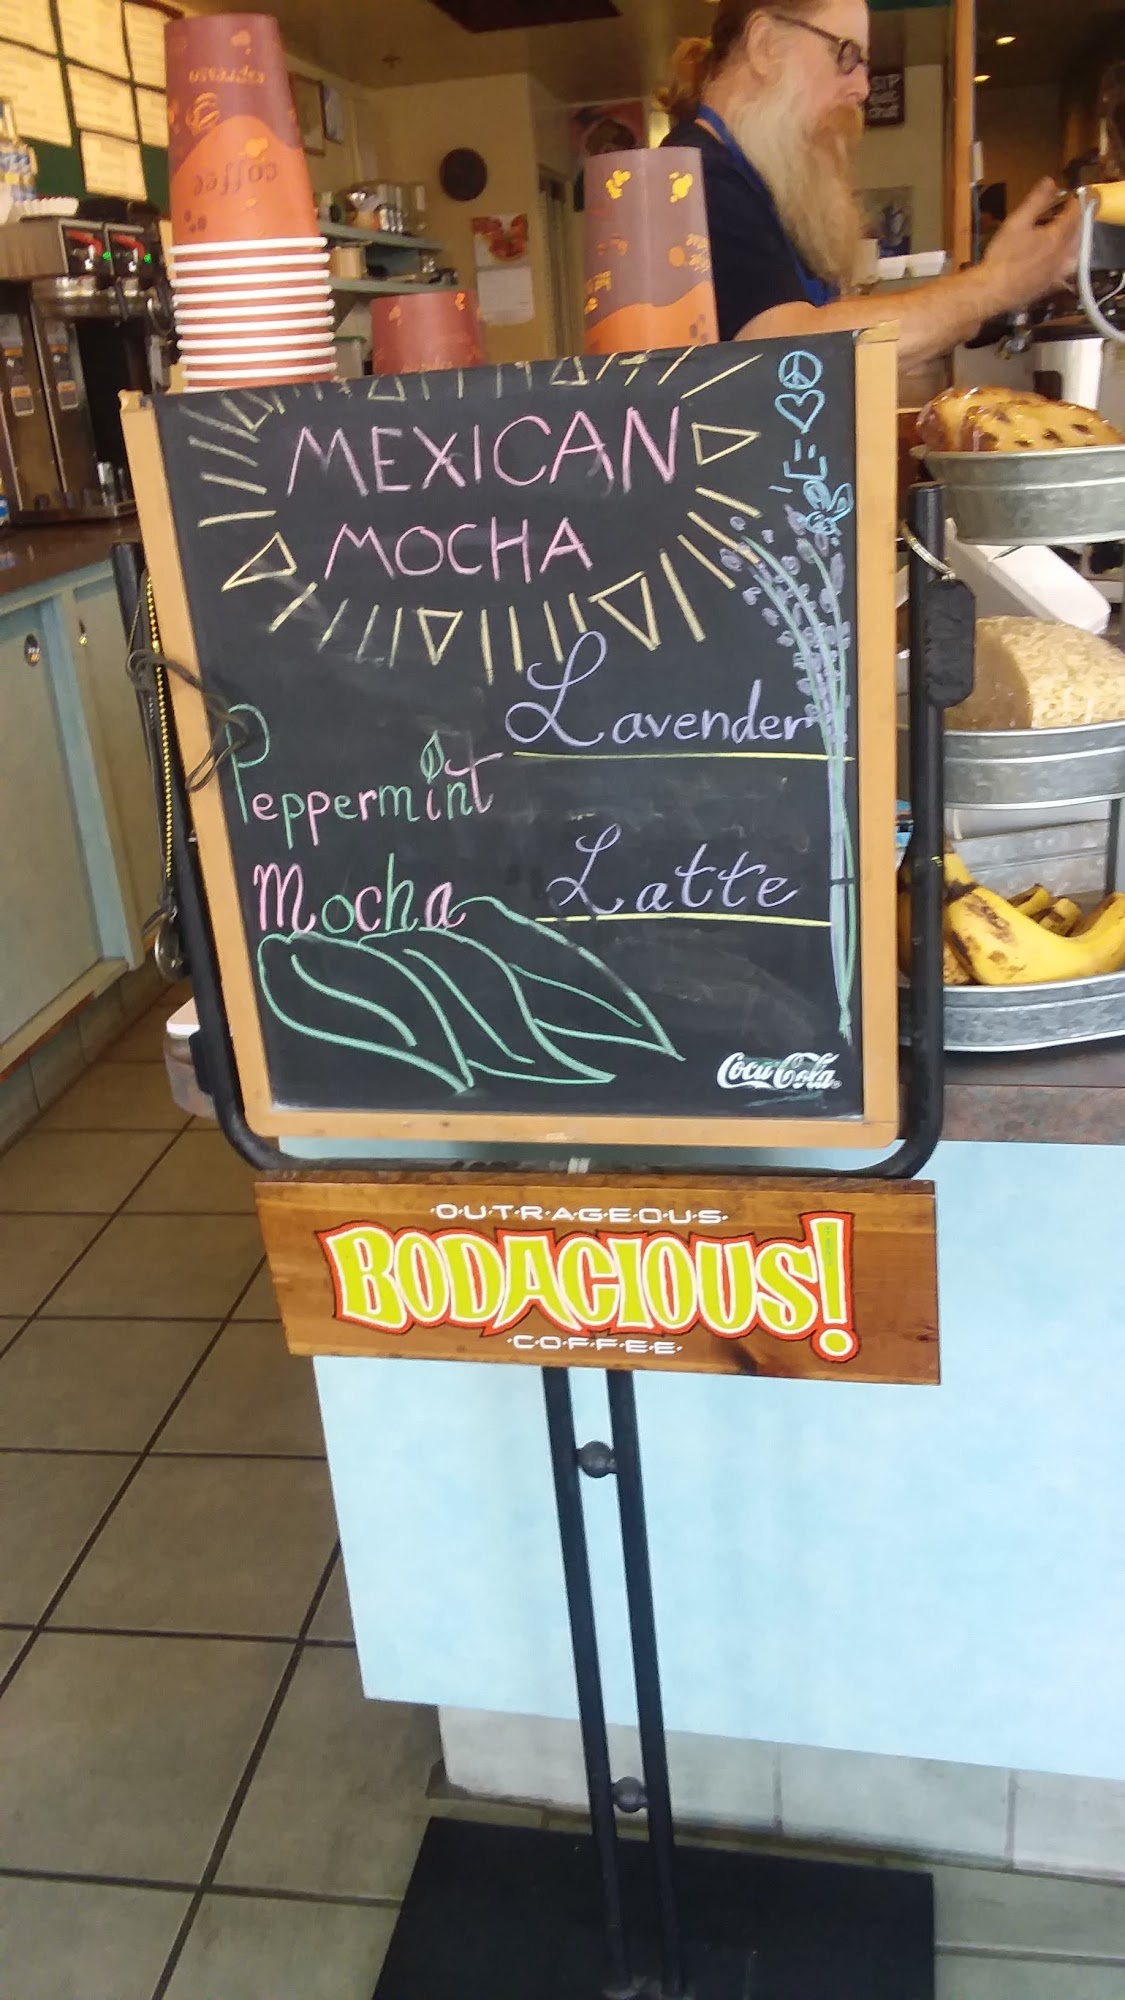 MEXICAN
MOCHA
Lavender
Latte
Peppermint
Mocha
Coca-Cola
OUTRAGEOUS
BODACIOUS!
COFFEE
espresso
coffee